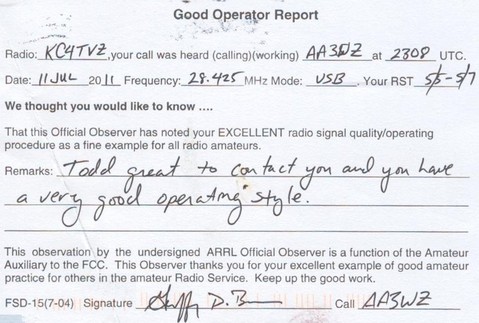 Good Operator Report
Radio: KC4TVZ, your call was heard (calling)(working) AA3WZ at 2308 UTC.
Date: 11 JUL 2011 Frequency: 28.425 MHz Mode: USB. Your RST 5/5-5/7
We thought you would like to know ....
That this Official Observer has noted your EXCELLENT radio signal quality/operating
procedure as a fine example for all radio amateurs.
Remarks: Todd great to contact you and you have
a very good operating style.
This observation by the undersigned ARRL Official Observer is a function of the Amateur
Auxiliary to the FCC. This Observer thanks you for your excellent example of good amateur
practice for others in the amateur Radio Service. Keep up the good work.
FSD-15(7-04) Signature D. Call AA3WZ